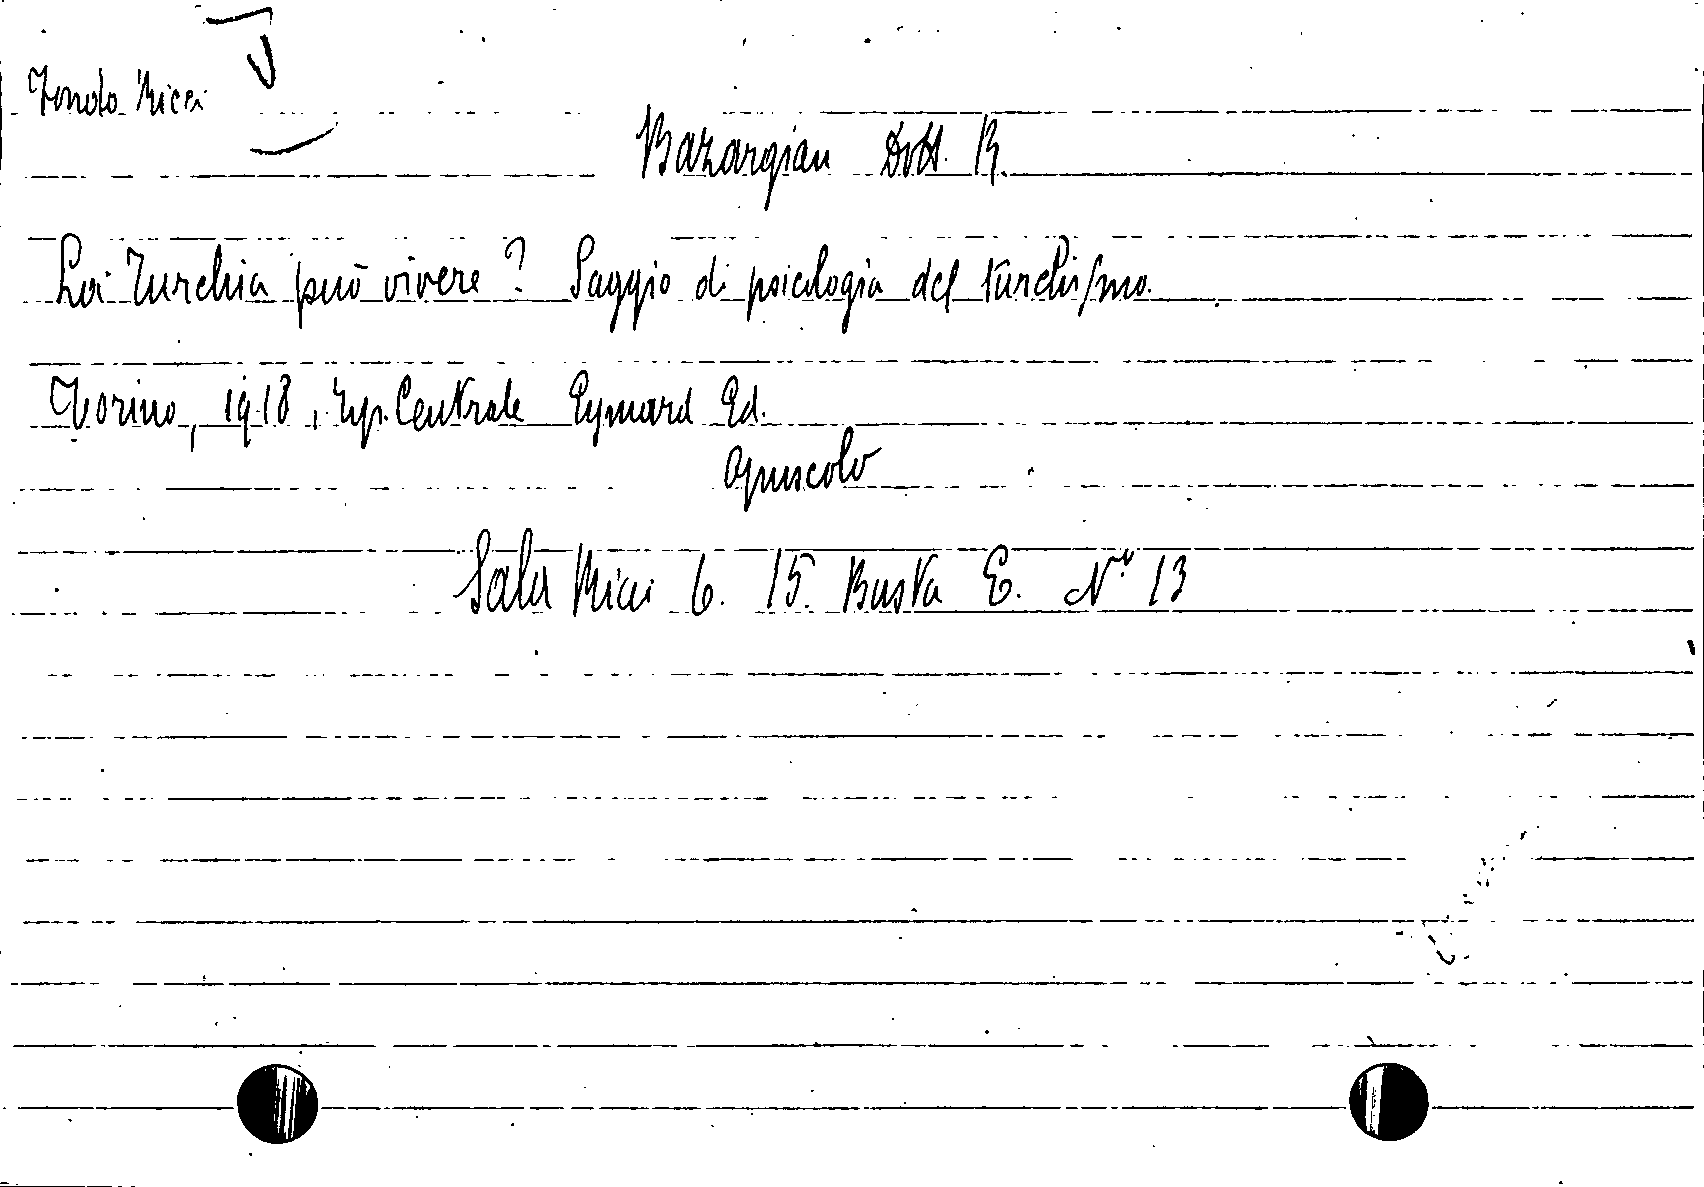 Fondo Ricci
Bazargian Dott. R.
La Turchia può vivere? Saggio di psicologia del turchismo.
Torino, 1918, Typ. Centrale Eymard Ed.
opuscolo
Sala Ricci 6. 15. Busta E. N.° 13